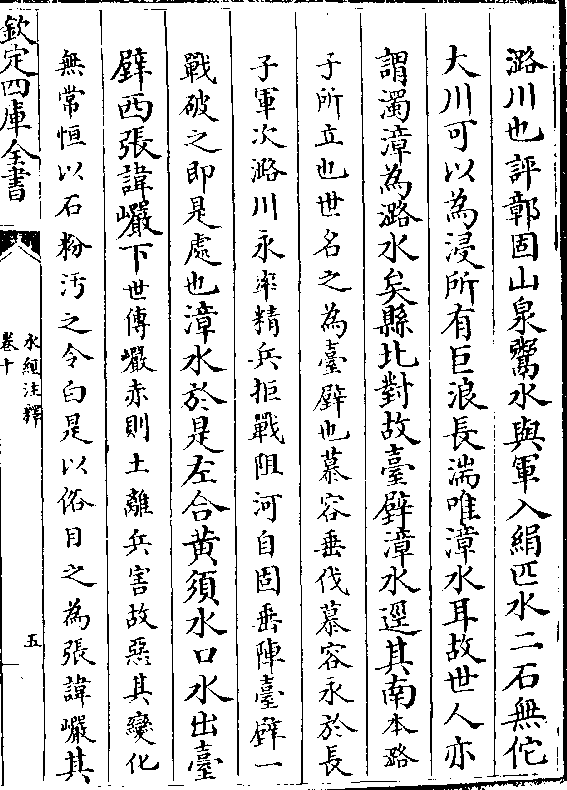 潞川也評鄣固山泉鬻水與軍入絹匹水二石無佗
大川可以為浸所有巨浪長湍唯漳水耳故世人亦
謂濁漳為潞水矣縣北對故臺壁漳水逕其南本潞
子所立也世名之為臺壁也慕容垂伐慕容永於長
子軍次潞川永率精兵拒戰阻河自固垂陣臺壁一
戰破之即是處也漳水於是左合黃須水口水出臺
壁西張諱巖下世傳巖赤則土離兵害故惡其變化
無常恒以石粉汚之令白是以俗目之為張諱巖其
欽定四庫全書
水經注釋
卷十
五